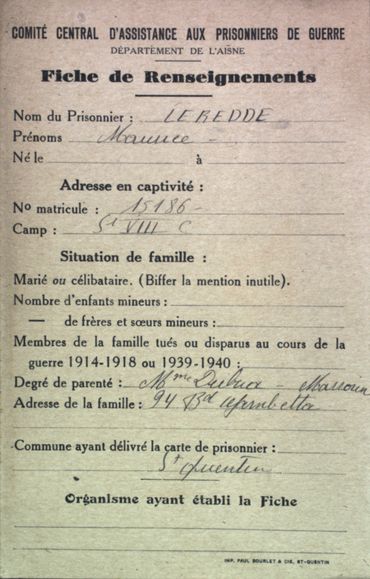 COMITÉ CENTRAL D'ASSISTANCE AUX PRISONNIERS DE GUERRE
DÉPARTEMENT DE L'AISNE
Fiche de Renseignements
Nom du Prisonnier : LEREDDE
Prénoms Maurice
Né le à
Adresse en captivité :
No matricule : 15186
Camp : St VIII C
Situation de famille :
Marié ou célibataire. (Biffer la mention inutile).
Nombre d'enfants mineurs :
— de frères et sœurs mineurs :
Membres de la famille tués ou disparus au cours de la
guerre 1914-1918 ou 1939-1940 :
Degré de parenté : Mme
Adresse de la famille : 94 Bd Gambetta
Commune ayant délivré la carte de prisonnier :
St Quentin
Organisme ayant établi la Fiche
IMP. PAUL BOURLET & CIE, ST-QUENTIN